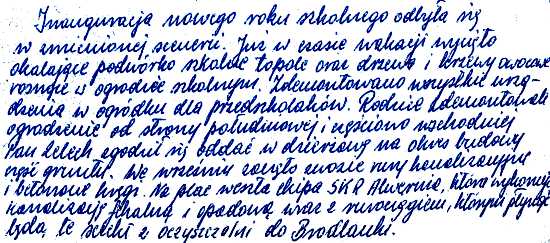 Inauguracja nowego roku szkolnego odbyła się
w zmienionej scenerii. Już w czasie wakacji wycięto
okalające podwórko szkolne topole oraz drzewa i krzewy owocowe
rosnące w ogrodzie szkolnym. Zdemontowano wszystkie urzą-
dzenia w ogródku dla przedszkolaków. Rodzice zdemontowali
ogrodzenie od strony południowej i częściowo wschodniej
Pan Lelech zgodził się oddać w dzierżawę na okres budowy
część gruntu. We wrześniu zaczęto zwozić rury kanalizacyjne
i betonowe kręgi. Na plac weszła ekipa SKR Alwernia, która wykonuje
kanalizację fekalną i opadową wraz z rurociągiem, którym płynąć
będą te ścieki z oczyszczalni do Brodlanki.